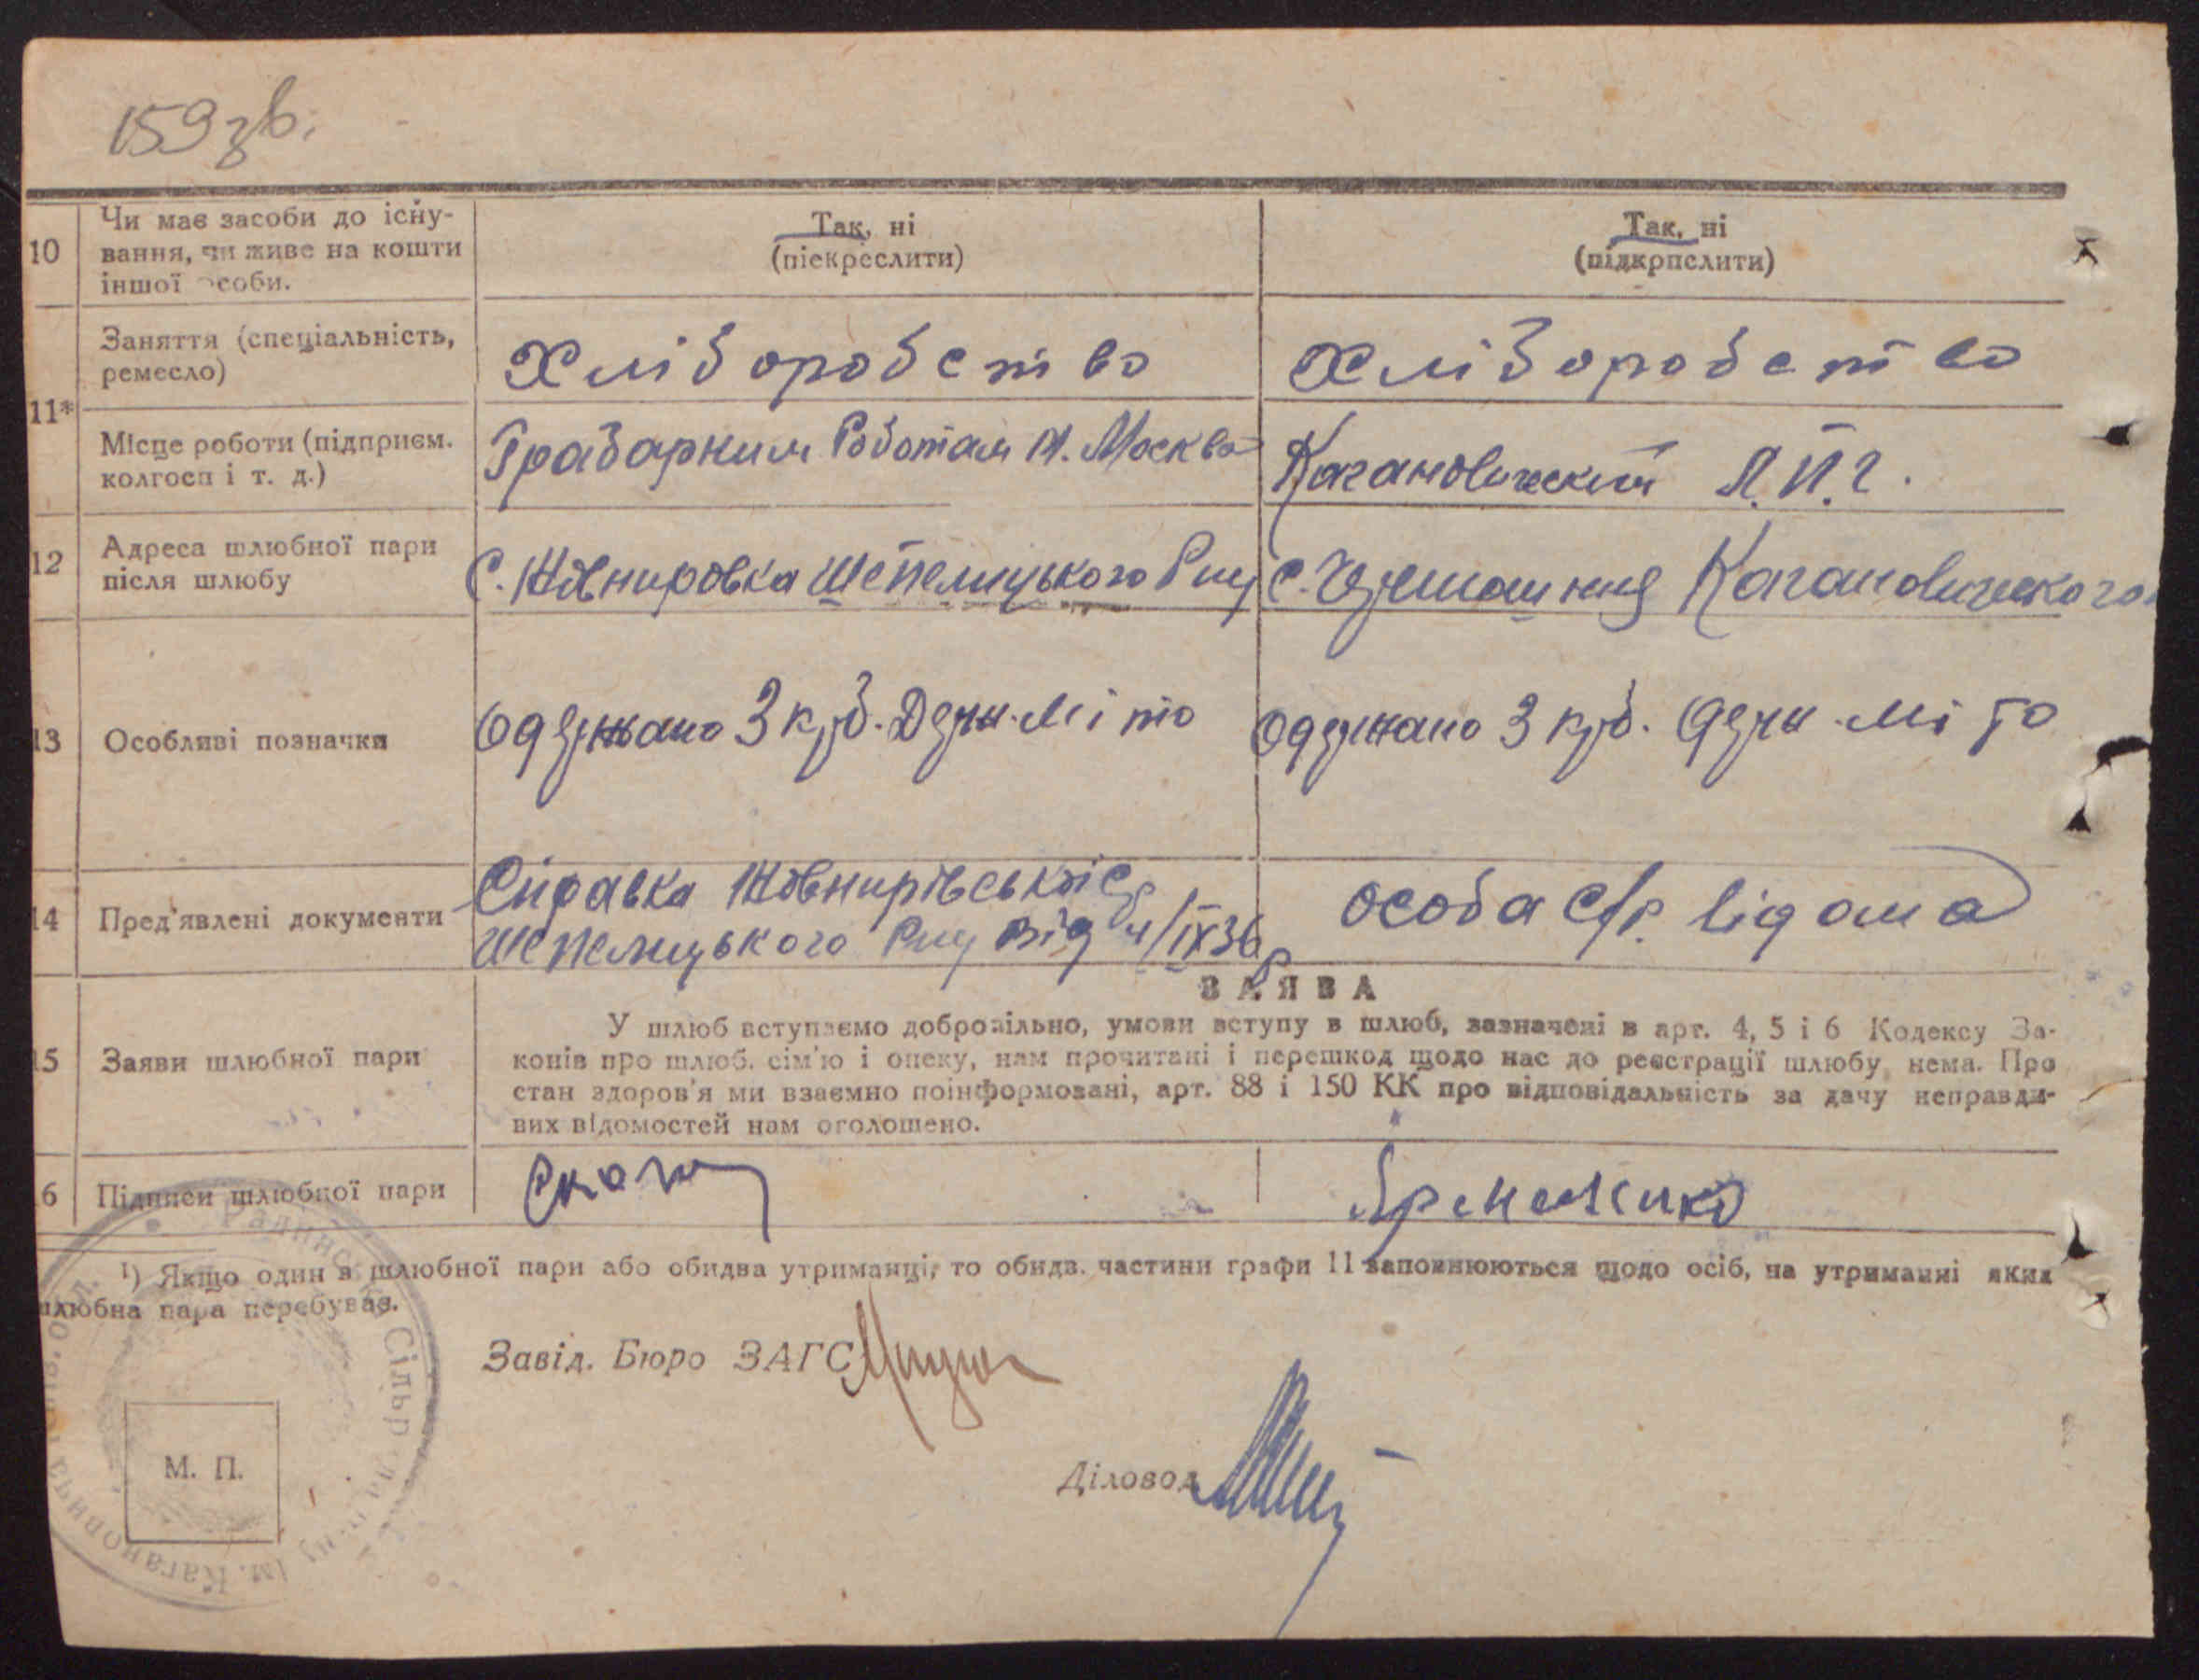 159 зв.
10 Чи має засоби до існу-
вання, чи живе на кошти
іншої особи.
Так, ні
(піекреслити)
Так, ні
(підкрпслити)
11* Заняття (спеціальність,
ремесло)
Хліборобство
Хліборобство
Місце роботи (підприєм.
колгосп і т. д.)
Грабарним Роботам М. Москва
Кагановический Л.П.Г.
12 Адреса шлюбної пари
після шлюбу
С. Жовнировка Шепелицького Рну
С. Кагановического
13 Особливі позначки
Одержано 3 крб. Держ.мі то
Одержано 3 крб. Держ.мі то
14 Пред'явлені документи
Справка Жовнирівської С/р
Шепелицького Рну від 4/IX 36 р
особа С/р. відома
ЗАЯВА
15 Заяви шлюбної пари
У шлюб вступаємо добровільно, умови вступу в шлюб, зазначені в арт. 4, 5 і 6 Кодексу За-
конів про шлюб. сім'ю і опеку, нам прочитані і перешкод щодо нас до реєстрації шлюбу нема. Про
стан здоров'я ми взаємно поінформовані, арт. 88 і 150 КК про відповідальність за дачу неправди-
вих відомостей нам оголошено.
6 Підписи шлюбної пари
¹) Якщо один в шлюбної пари або обидва утриманці, то обидв. частини графи 11 заповнюються щодо осіб, на утриманні яких
шлюбна пара перебуває.
Завід. Бюро ЗАГС
Діловод
М. П.
Сільр
ім. Каганович